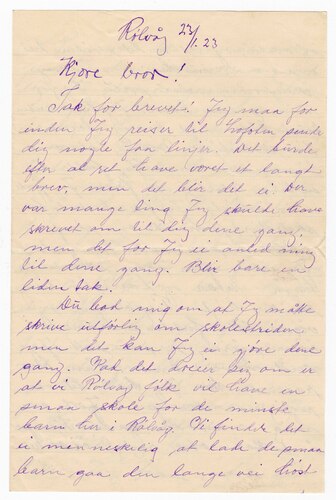 Rølvåg 23/1. 23
Kjære bror!
Tak for brevet! Jeg maa for
inden Jeg reiser til Lofoten sende
dig nogle faa linjer. Det burde
efter al ret have været et langt
brev, men det blir det ei. Der
var mange ting Jeg skulde have
skrevet om til dig dene gang,
men det for Jeg ei anled ning
til dene gang. Blir bare en
liden tak.
Du bad mig om at Jeg måtte
skrive utførlig om skolestriden
men det kan Jeg ei gjøre dene
gang. Vad det dreier sig om er
at vi Rølvåg folk vil have en
smaa skole for de minste
barn her i Rølvåg. Vi finder det
ei menneskelig at lade de smaa
barn gaa den lange vei høst